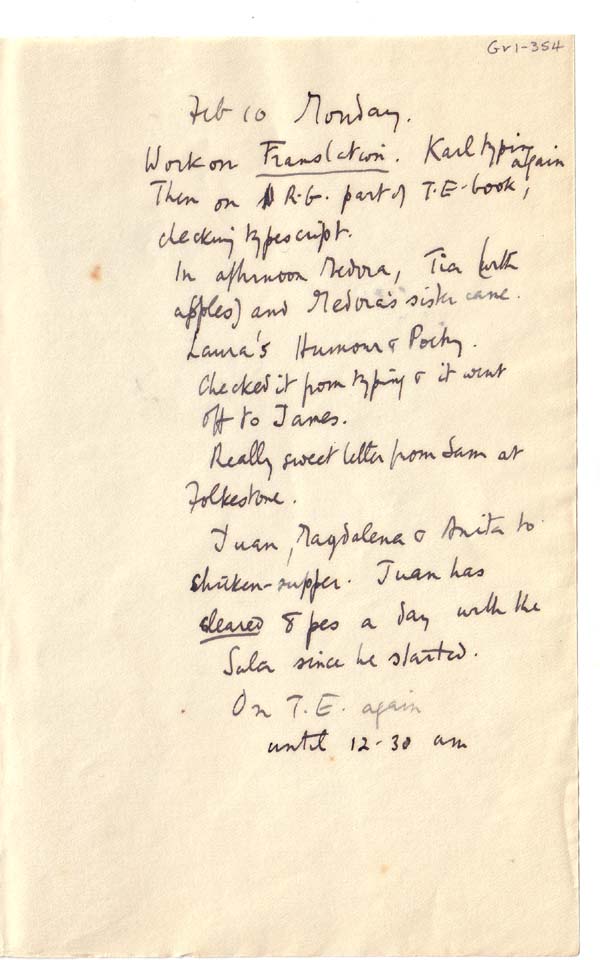 Gv1-354
Feb 10 Monday.
Work on Translation. Karl typing again
Then on R-G. part of T.E-book,
checking typescript.
In afternoon Medora, Tia (with
apples) and Medora's sister came.
Laura's Humour & Poetry.
Checked it from typing & it went
off to James.
Really sweet letter from Sam at
Folkestone.
Juan, Magdalena & Anita to
chicken-supper. Juan has
cleared 8 pes a day with the
Sala since he started.
On T.E. again
until 12-30 am